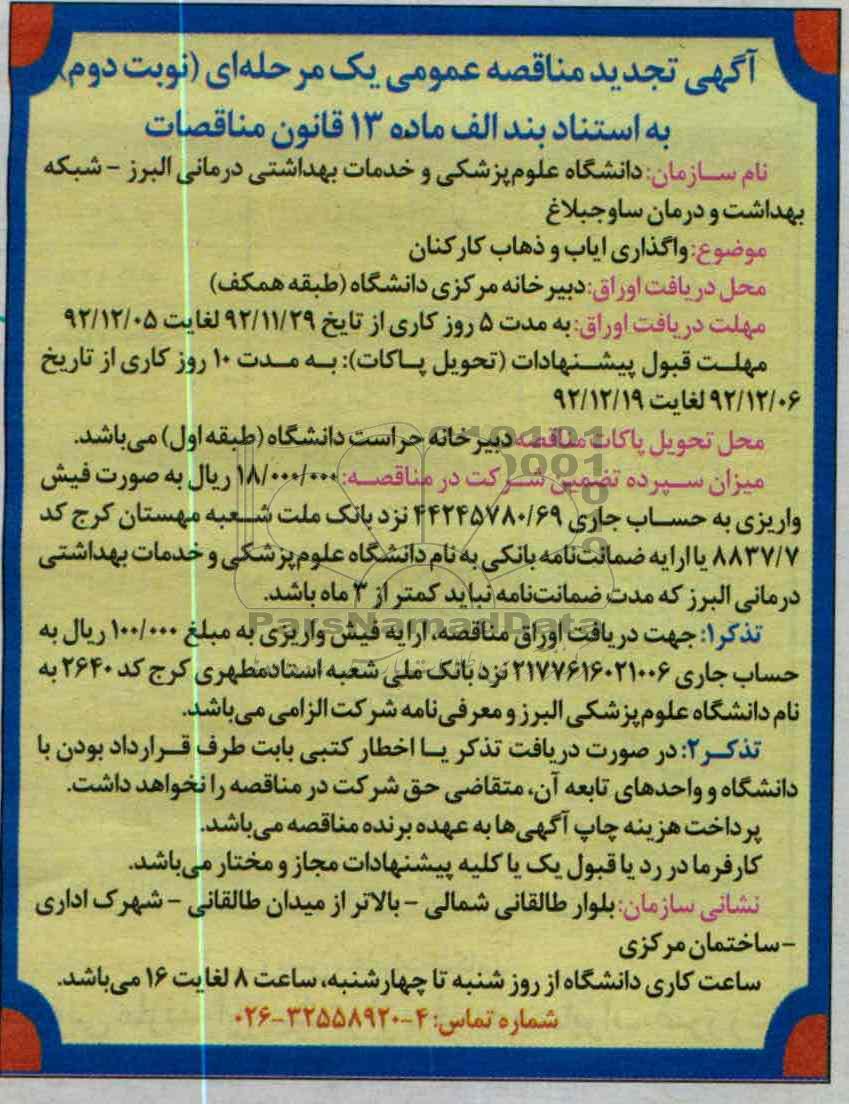 آگهی تجدید مناقصه عمومی یک مرحله‌ای (نوبت دوم)
به استناد بند الف ماده ۱۳ قانون مناقصات
نام سازمان: دانشگاه علوم‌پزشکی و خدمات بهداشتی درمانی البرز - شبکه
بهداشت و درمان ساوجبلاغ
موضوع: واگذاری ایاب و ذهاب کارکنان
محل دریافت اوراق: دبیرخانه مرکزی دانشگاه (طبقه همکف)
مهلت دریافت اوراق: به مدت ۵ روز کاری از تایخ ۹۲/۱۱/۲۹ لغایت ۹۲/۱۲/۰۵
مهلت قبول پیشنهادات (تحویل پاکات): به مدت ۱۰ روز کاری از تاریخ
۹۲/۱۲/۰۶ لغایت ۹۲/۱۲/۱۹
محل تحویل پاکات مناقصه دبیرخانه حراست دانشگاه (طبقه اول) می‌باشد.
میزان سپرده تضمین شرکت در مناقصه: ۱۸/۰۰۰/۰۰۰ ریال به صورت فیش
واریزی به حساب جاری ۴۴۲۴۵۷۸۰/۶۹ نزد بانک ملت شعبه مهستان کرج کد
۸۸۳۷/۷ یا ارایه ضمانت‌نامه بانکی به نام دانشگاه علوم‌پزشکی و خدمات بهداشتی
درمانی البرز که مدت ضمانت‌نامه نباید کمتر از ۳ ماه باشد.
ParsNamadData
تذکر۱: جهت دریافت اوراق مناقصه، ارایه فیش واریزی به مبلغ ۱۰۰/۰۰۰ ریال به
حساب جاری ۲۱۷۷۶۱۶۰۲۱۰۰۶ نزد بانک ملی شعبه استادمطهری کرج کد ۲۶۴۰ به
نام دانشگاه علوم‌پزشکی البرز و معرفی‌نامه شرکت الزامی می‌باشد.
تذکر۲: در صورت دریافت تذکر یا اخطار کتبی بابت طرف قرارداد بودن با
دانشگاه و واحدهای تابعه آن، متقاضی حق شرکت در مناقصه را نخواهد داشت.
پرداخت هزینه چاپ آگهی‌ها به عهده برنده مناقصه می‌باشد.
کارفرما در رد یا قبول یک یا کلیه پیشنهادات مجاز و مختار می‌باشد.
نشانی سازمان: بلوار طالقانی شمالی - بالاتر از میدان طالقانی - شهرک اداری
-ساختمان مرکزی
ساعت کاری دانشگاه از روز شنبه تا چهارشنبه، ساعت ۸ لغایت ۱۶ می‌باشد.
شماره تماس: ۴-۳۲۵۵۸۹۲۰-۰۲۶